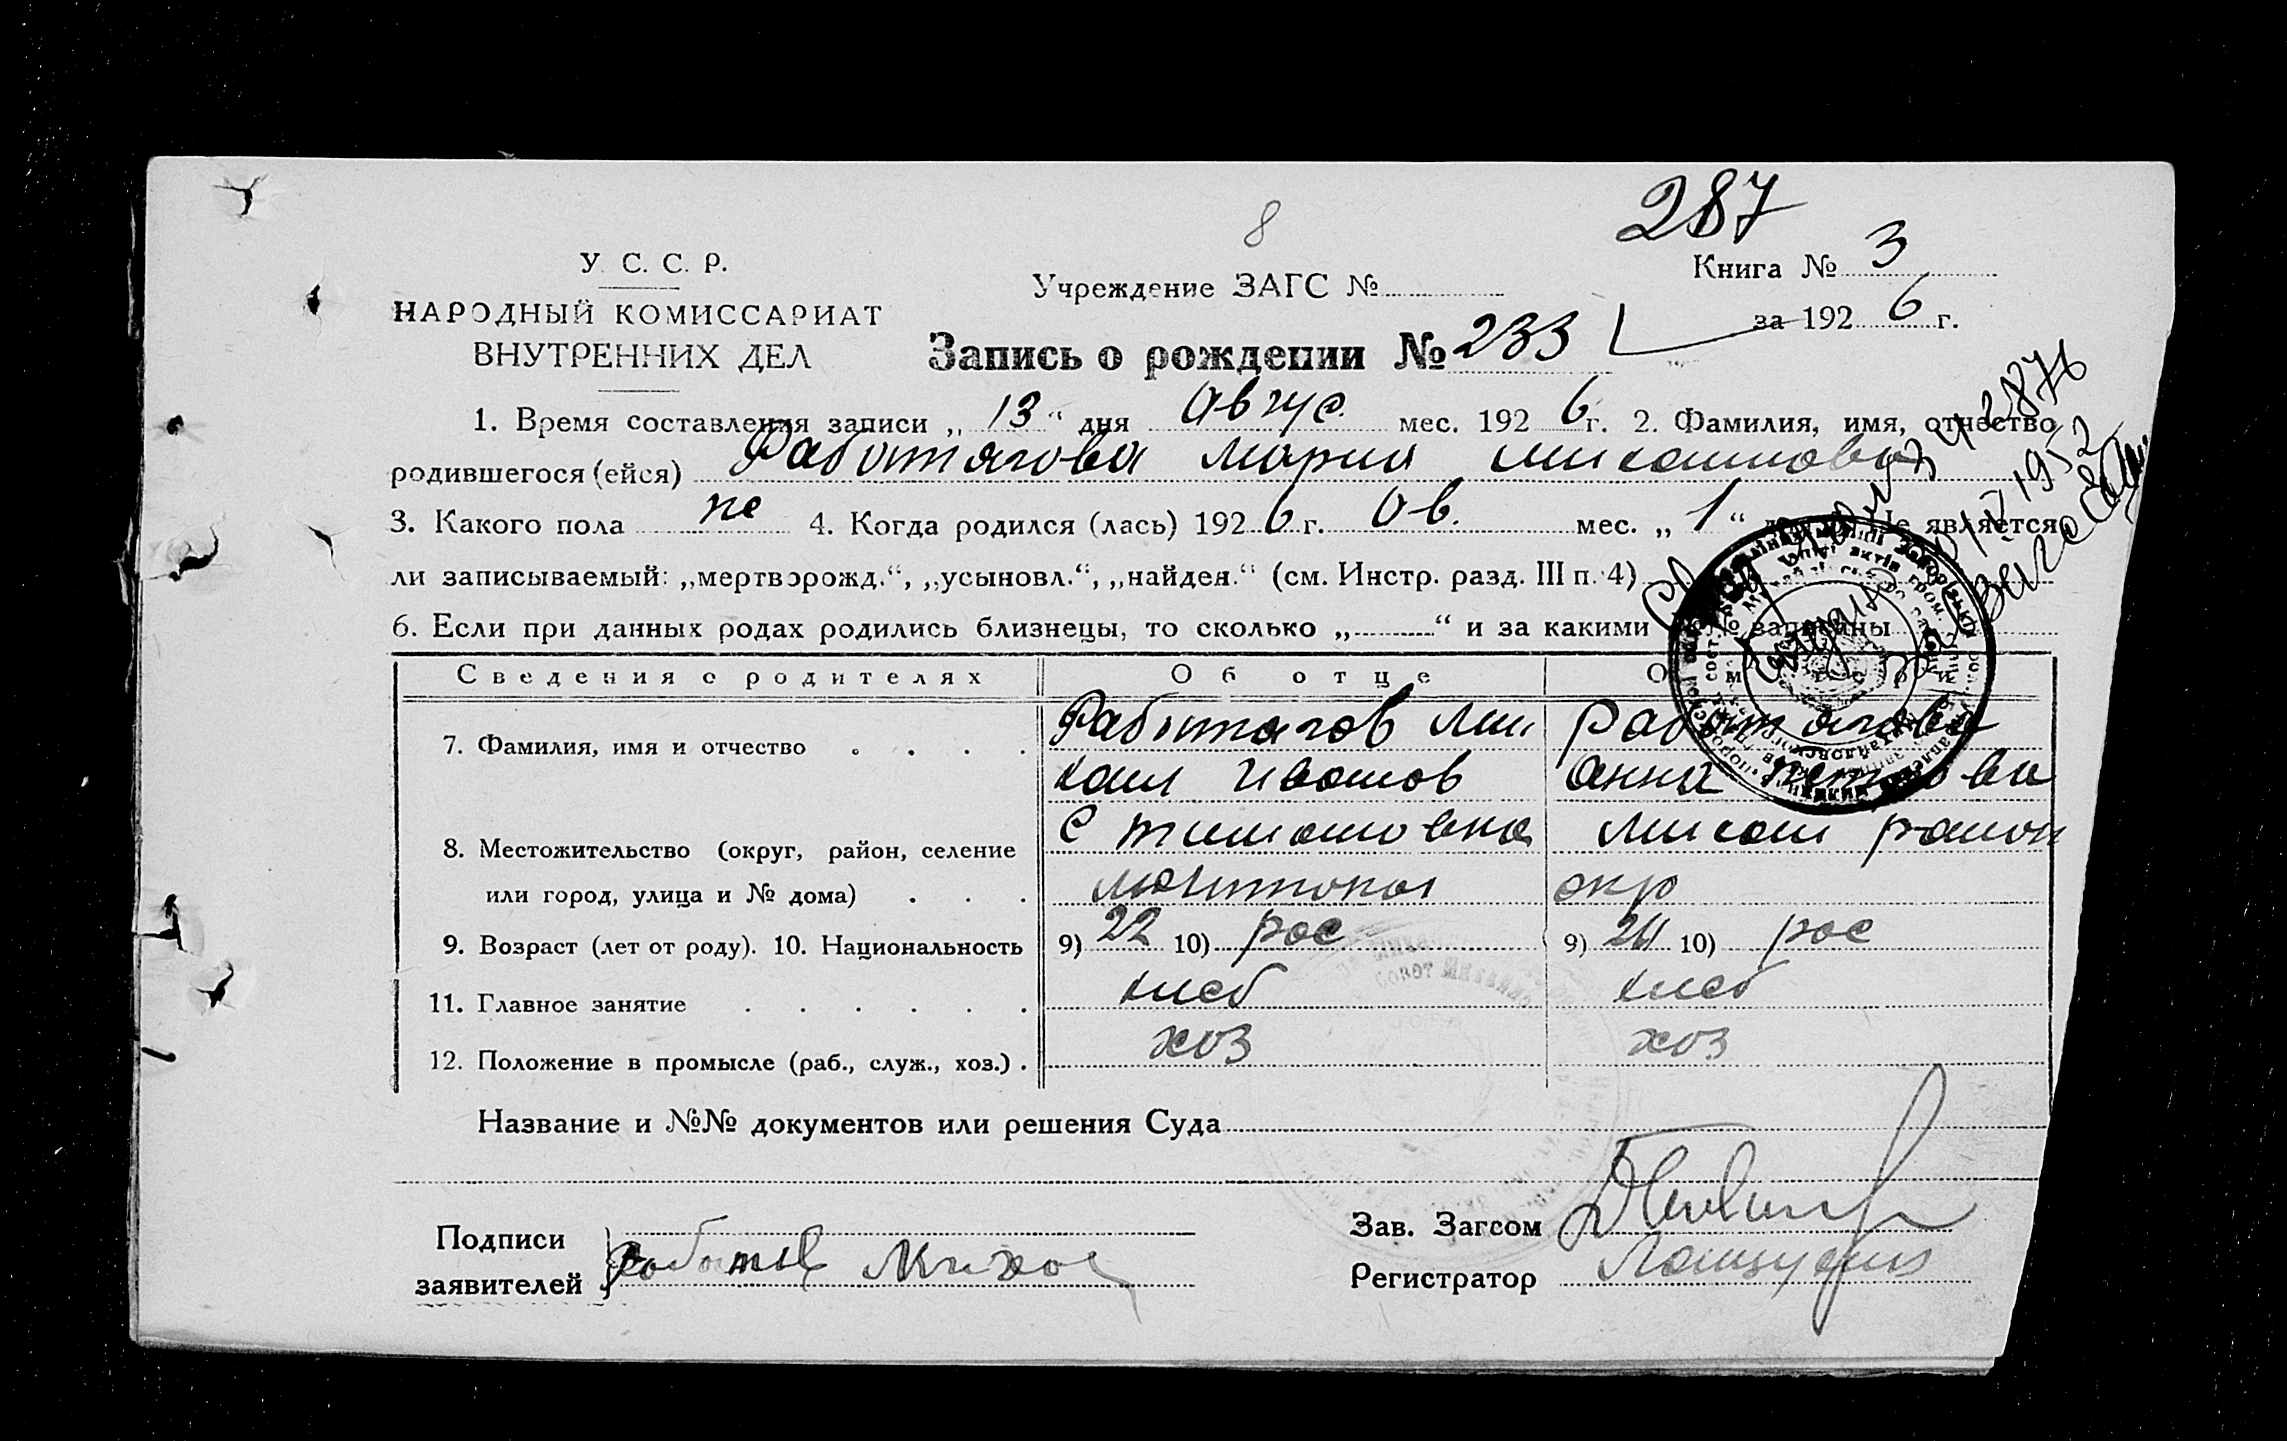 287
8
У. С. С. Р.
Учреждение ЗАГС №
Книга № 3
НАРОДНЫЙ КОМИССАРИАТ
ВНУТРЕННИХ ДЕЛ
за 1926 г.
Запись о рождении № 233
1. Время составления записи „13“ дня Авгус. мес. 1926 г. 2. Фамилия, имя, отчество
родившегося (ейся) Работягова Мария Михайловна
3. Какого пола же 4. Когда родился (лась) 1926 г. Ав. мес. „1“ Не является
ли записываемый: „мертворожд.“, „усыновл.“, „найден.“ (см. Инстр. разд. III п. 4)
6. Если при данных родах родились близнецы, то сколько „ “ и за какими №№ записаны
1952
Сведения о родителях Об отце О матери
7. Фамилия, имя и отчество Работягов Ми Работягова
хаил Иванов Анна Петровна
8. Местожительство (округ, район, селение С Тимошовка Михай район
или город, улица и № дома) Мелитопол окр
9. Возраст (лет от роду). 10. Национальность 9) 22 10) рос 9) 20 10) рос
11. Главное занятие хлеб хлеб
12. Положение в промысле (раб., служ., хоз.) хоз хоз
Название и №№ документов или решения Суда
Подписи
заявителей
Зав. Загсом
Регистратор